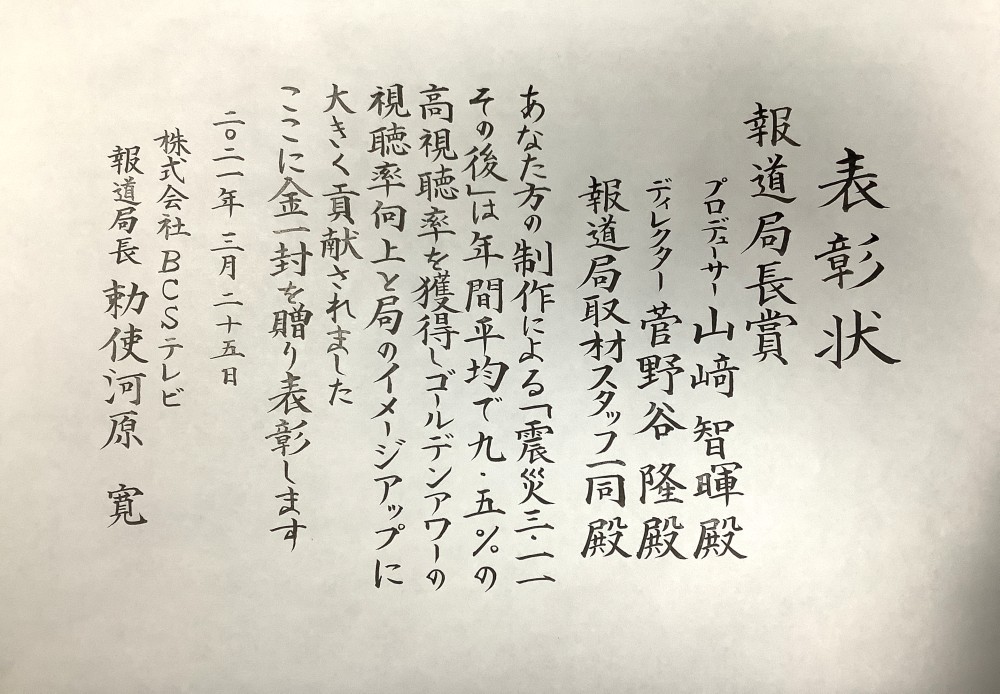 表彰状
報道局長賞
プロデューサー 山﨑 智暉 殿
ディレクター 菅野谷 隆 殿
報道局取材スタッフ一同 殿
あなた方の制作による「震災三・一一
その後」は年間平均で九・五%の
高視聴率を獲得しゴールデンアワーの
視聴率向上と局のイメージアップに
大きく貢献されました
ここに金一封を贈り表彰します
二〇二一年 三月 二十五日
株式会社 BCSテレビ
報道局長 勅使河原 寛